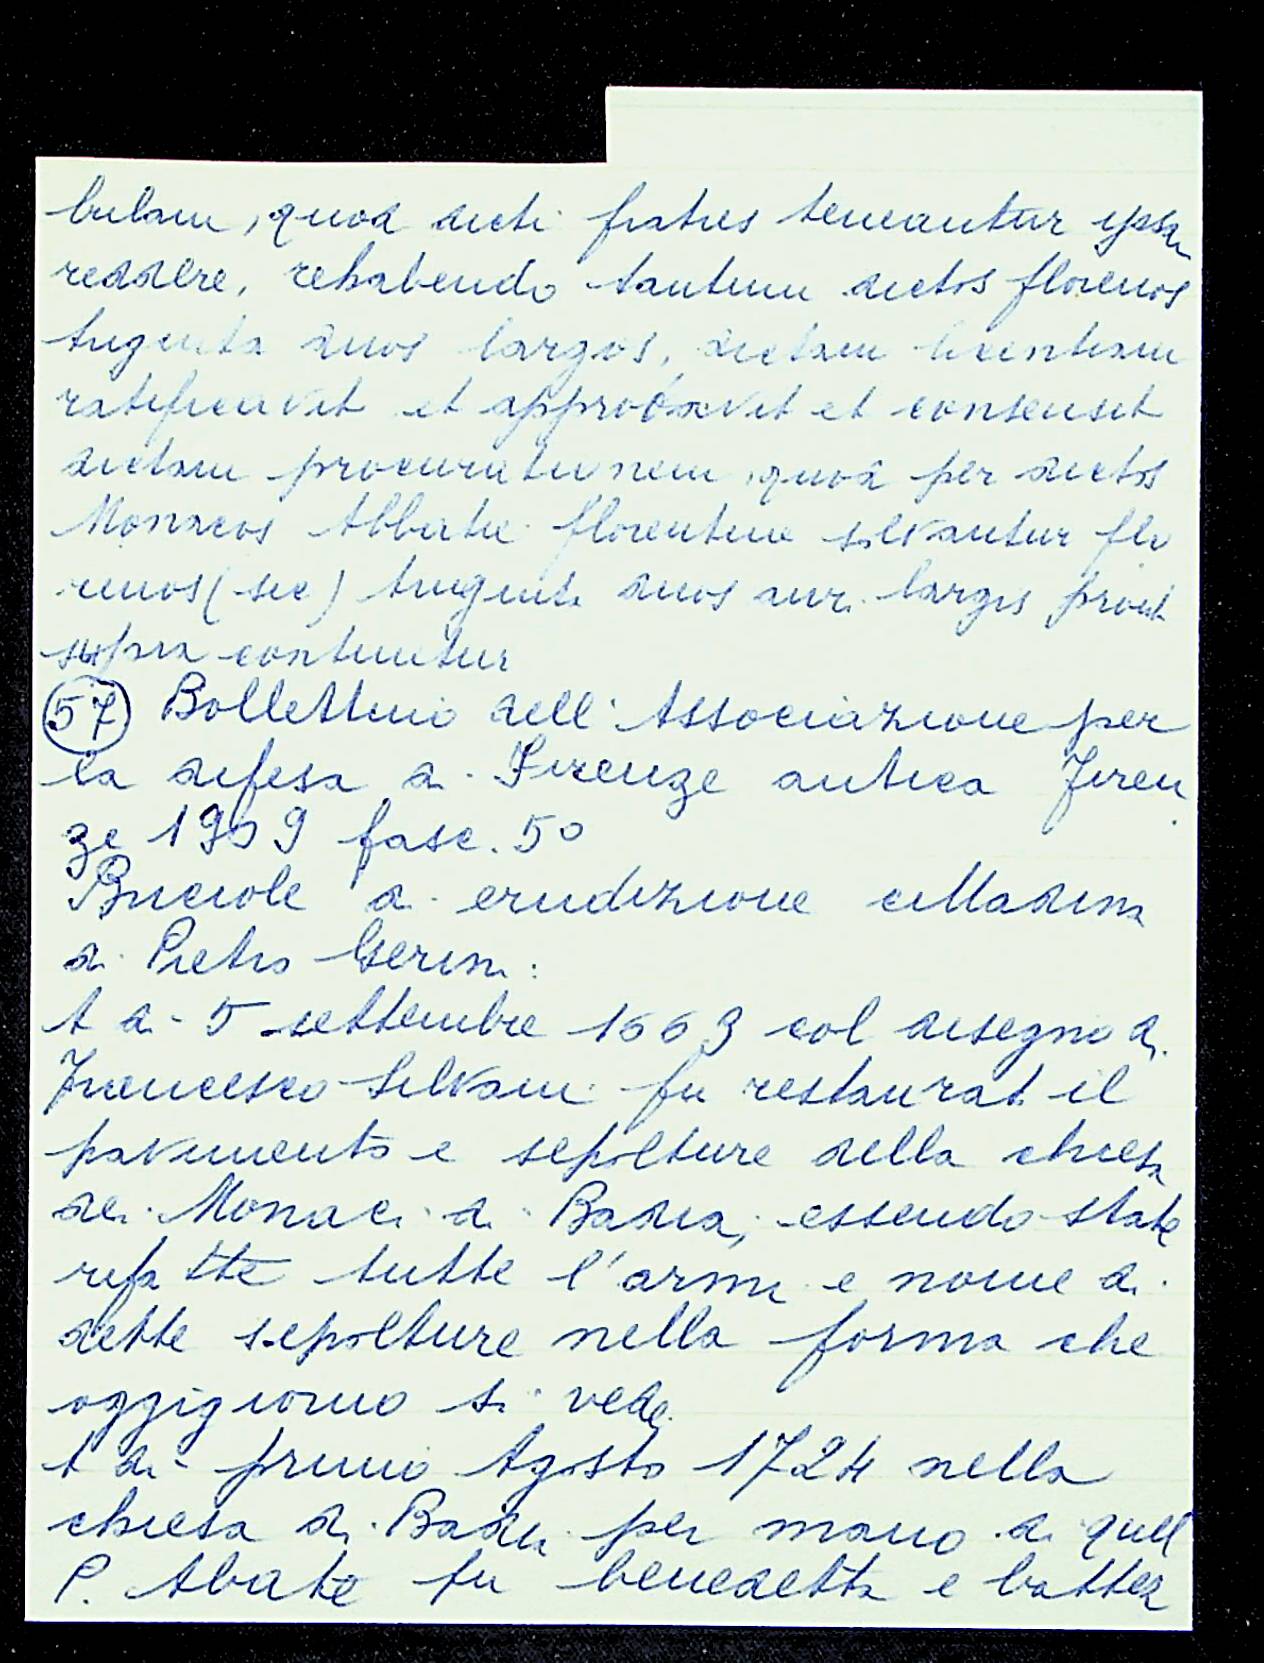 bulam, quod dicti fratres teneantur ipsam
reddere, rehabendo tantum dictos florenos
triginta duos largos, dictam licentiam
ratificavit et approbavit et consensit
dictam procurationem, quod per dictos
Monacos Abbatie florentine solvantur flo
renos (sic) triginta duos aur. largos prout
supra continetur
57 Bollettino dell'Associazione per
la difesa di Firenze antica Firen
ze 1909 fasc. 5º
Briciole di erudizione cittadina
di Pietro Gerini:
A dì 5 settembre 1663 col disegno di
Francesco Silvani fu restaurat il
pavimento e sepolture della chiesa
dei Monaci di Badia, essendo state
rifatte tutte l'armi e nome di
dette sepolture nella forma che
oggigiorno si vede.
A dì primo Agosto 1724 nella
chiesa di Badia per mano di quel
P. Abate fu benedetta e battez